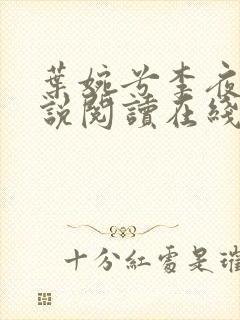 葉婉兮李夜
說閱讀在綫
十分紅處是璀